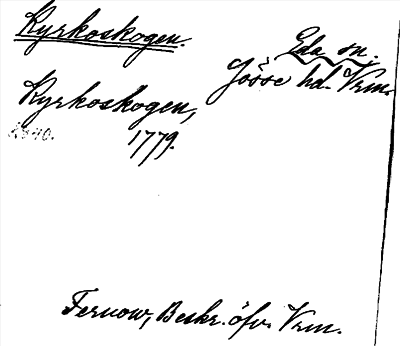 Kyrkoskogen.
Eda sn.
Jösse hd. Vrm.
Kyrkoskogen,
1779.
Fernow, Beskr. öfv. Vrm.